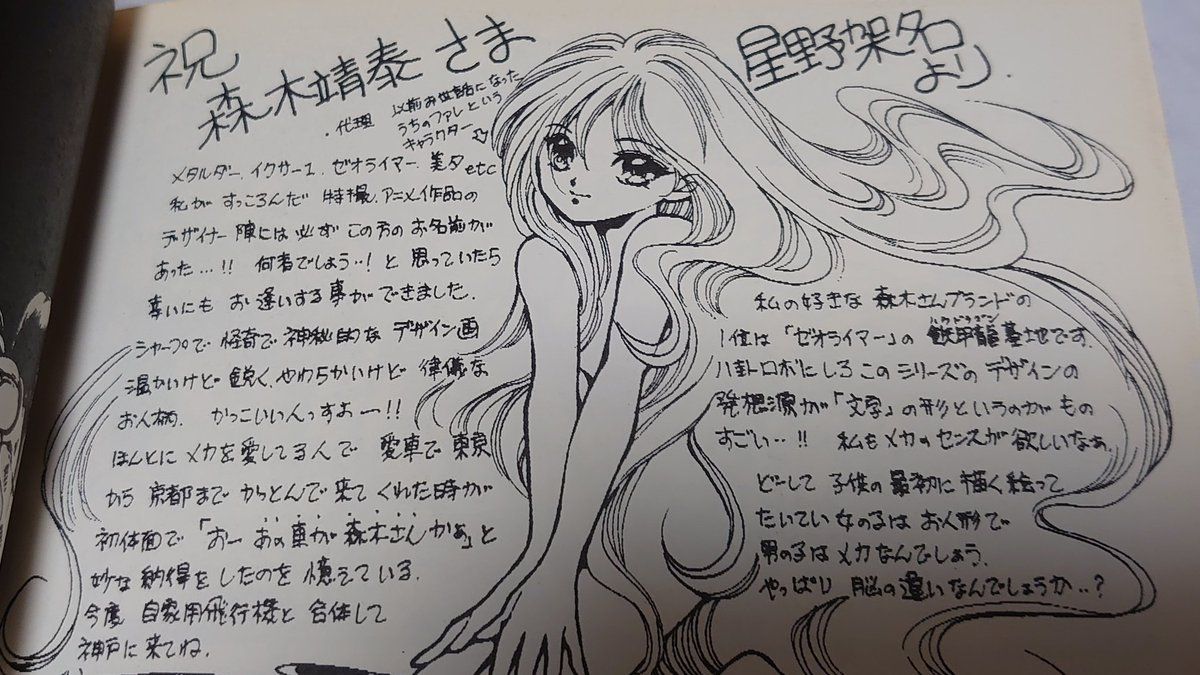 祝
森木靖泰さま
星野架名
より.
・代理
以前お世話になった
うちのファレという
キャラクター
メタルダー、イクサー1、ゼオライマー、美夕etc
私がすっころんだ 特撮、アニメ作品の
デザイナー陣には必ずこの方のお名前が
あった…!! 何者でしょう…!と思っていたら
幸いにもお逢いする事ができました.
シャープで怪奇で神秘的なデザイン画
温かいけど鋭く、やわらかいけど律儀な
お人柄. かっこいいんっすよー!!
ほんとにメカを愛してる人で 愛車で東京
から京都までかっとんで来てくれた時が
初体面で「おーあの車が森木さんかぁ」と
妙な納得をしたのを憶えている.
今度 自家用飛行機と合体して
神戸に来てね.
私の好きな森木さんブランドの
ハウドラゴン
1位は「ゼオライマー」の鉄甲龍基地です.
八卦ロボにしろこのシリーズのデザインの
発想源が「文字」の形というのがもの
すごい…!! 私もメカのセンスが欲しいなぁ.
どーして子供の最初に描く絵って
たいてい女の子はお人形で
男の子はメカなんでしょう.
やっぱり脳の違いなんでしょうか…?